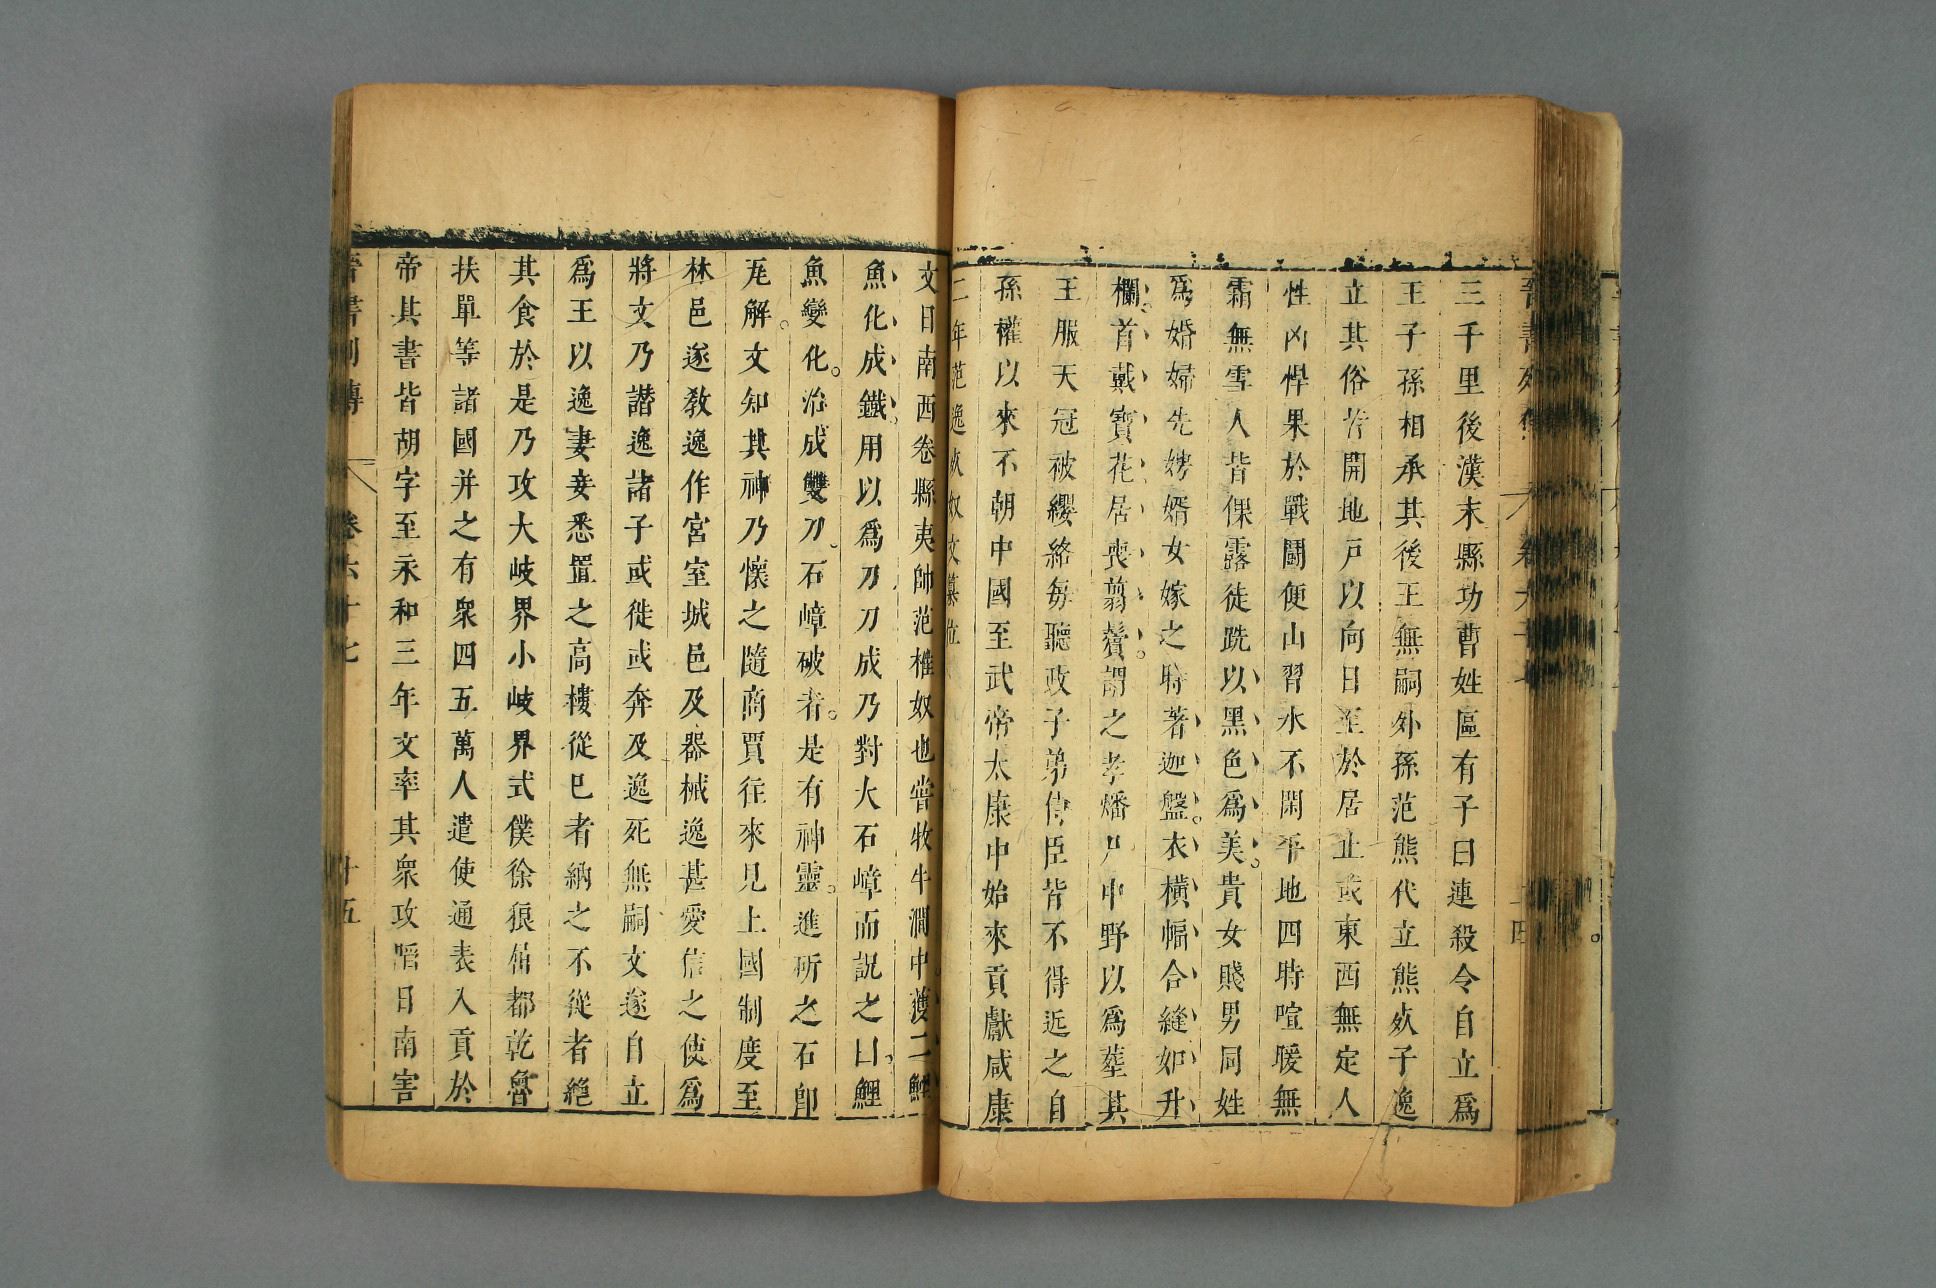 三千里後漢末縣功曹姓區有子曰連殺令自立爲
王子孫相承其後王無嗣外孫范熊代立熊死子逸
立其俗皆開北戶以向日至於居止或東西無定人
性凶悍果於戰鬬便山習水不閑平地四時暄暖無
霜無雪人皆倮露徒跣以黑色爲美貴女賤男同姓
爲婚婦先娉婿女嫁之時著迦盤衣橫幅合縫如井
欄首戴寶花居喪翦鬢謂之孝燔尸中野以爲葬其
王服天冠被纓絡每聽政子弟侍臣皆不得近之自
孫權以來不朝中國至武帝太康中始來貢獻咸康
二年范逸死奴文篡位
文日南西卷縣夷帥范椎奴也嘗牧牛澗中獲二鯉
魚化成鐵用以爲刀刀成乃對大石嶂而祝之曰鯉
魚變化冶成雙刀石嶂破者是有神靈進斫之石卽
瓦解文知其神乃懷之隨商賈往來見上國制度至
林邑遂敎逸作宮室城邑及器械逸甚愛信之使爲
將文乃譖逸諸子或徙或奔及逸死無嗣文遂自立
爲王以逸妻妾悉置之高樓從已者納之不從者絶
其食於是乃攻大岐界小岐界式僕徐狼屈都乾魯
扶單等諸國并之有衆四五萬人遣使通表入貢於
帝其書皆胡字至永和三年文率其衆攻䧟日南害
晉書列傳 卷六十七 十五